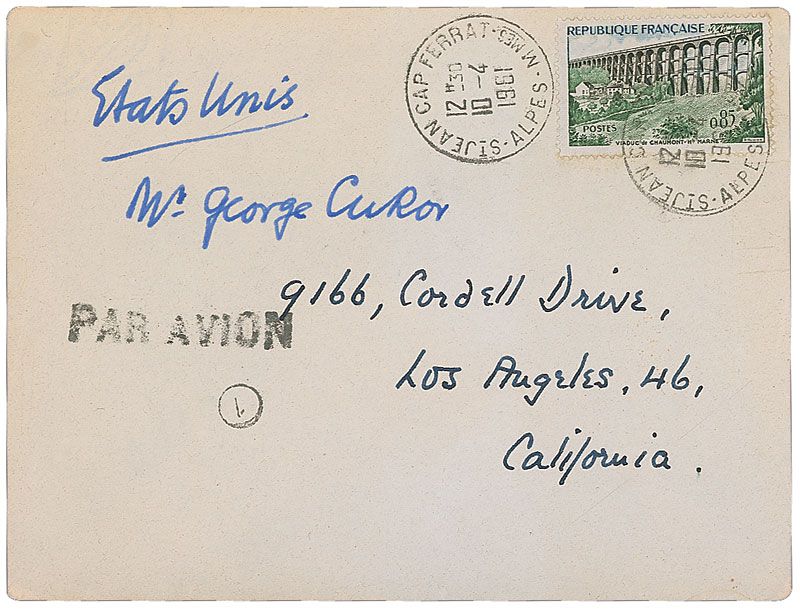 Etats Unis
ST JEAN CAP FERRAT - ALPES - MMES
12 H 30
10 - 4
1961
REPUBLIQUE FRANÇAISE
POSTES
0,85
VIADUC de CHAUMONT-Hte MARNE
ST JEAN
12
10
196
S - ALPES
Mr George Cukor
9166, Cordell Drive,
PAR AVION
Los Angeles, 46,
1
California.